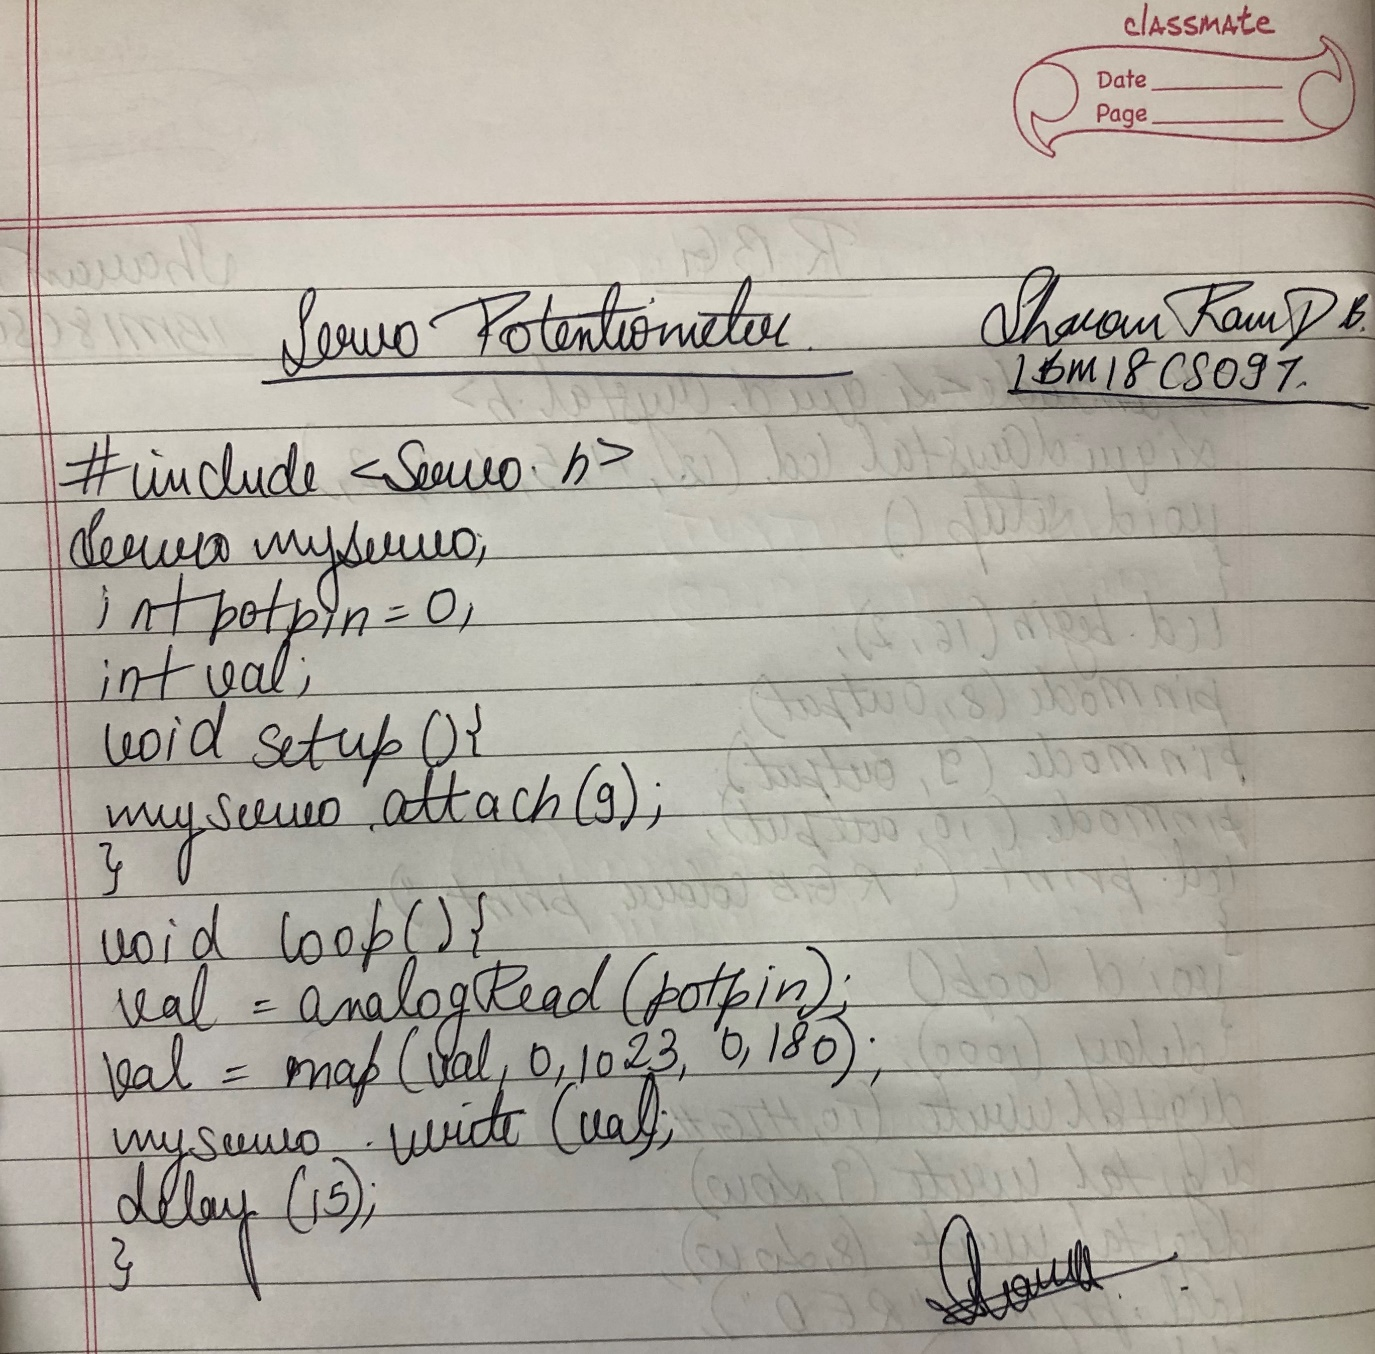 classmate
Date
Page
Servo Potentiometer.
Sharan Ram D B.
1BM18CS097.
#include <Servo.h>
Servo myservo;
int potpin = 0;
int val;
void setup (){
myservo.attach(9);
}
void loop(){
val = analogRead (potpin);
val = map(val, 0, 1023, 0, 180);
myservo.write (val);
delay (15);
}